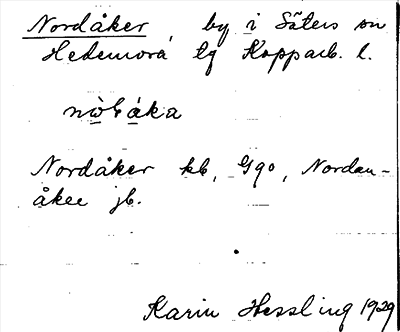 Nordåker, by i Säters sn
Hedemora tg Kopparb. l.
Nordåker kb, G90, Nordan-
åker jb.
Karin Hessling 1929